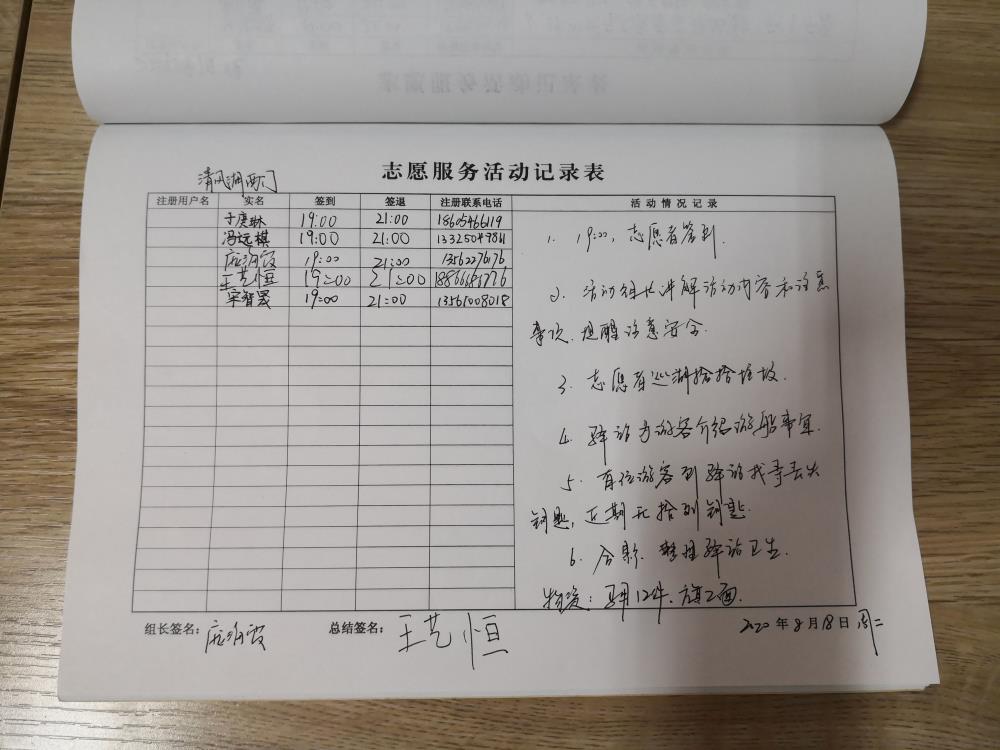 志愿服务活动记录表
清风湖西门
注册用户名 实名 签到 签退 注册联系电话 活动情况记录
于庚琳 19:00 21:00 18605466119
冯远棋 19:00 21:00 13325049811
19:00 21:00 13562276176
王艺恒 19:00 21:00
宋智晟 19:00 21:00 13561008018
1. 19:00, 志愿者签到.
2. 活动组长讲解活动内容和注意
事项. 提醒注意安全.
3. 志愿者巡湖捡拾垃圾.
4. 驿站为游客介绍游船事宜.
5. 有位游客到驿站找寻丢失
钥匙, 近期无捡到钥匙.
6. 合影. 整理驿站卫生.
物资: 马甲12件、旗2面.
组长签名: 总结签名: 王艺恒 2020年8月18日 周二